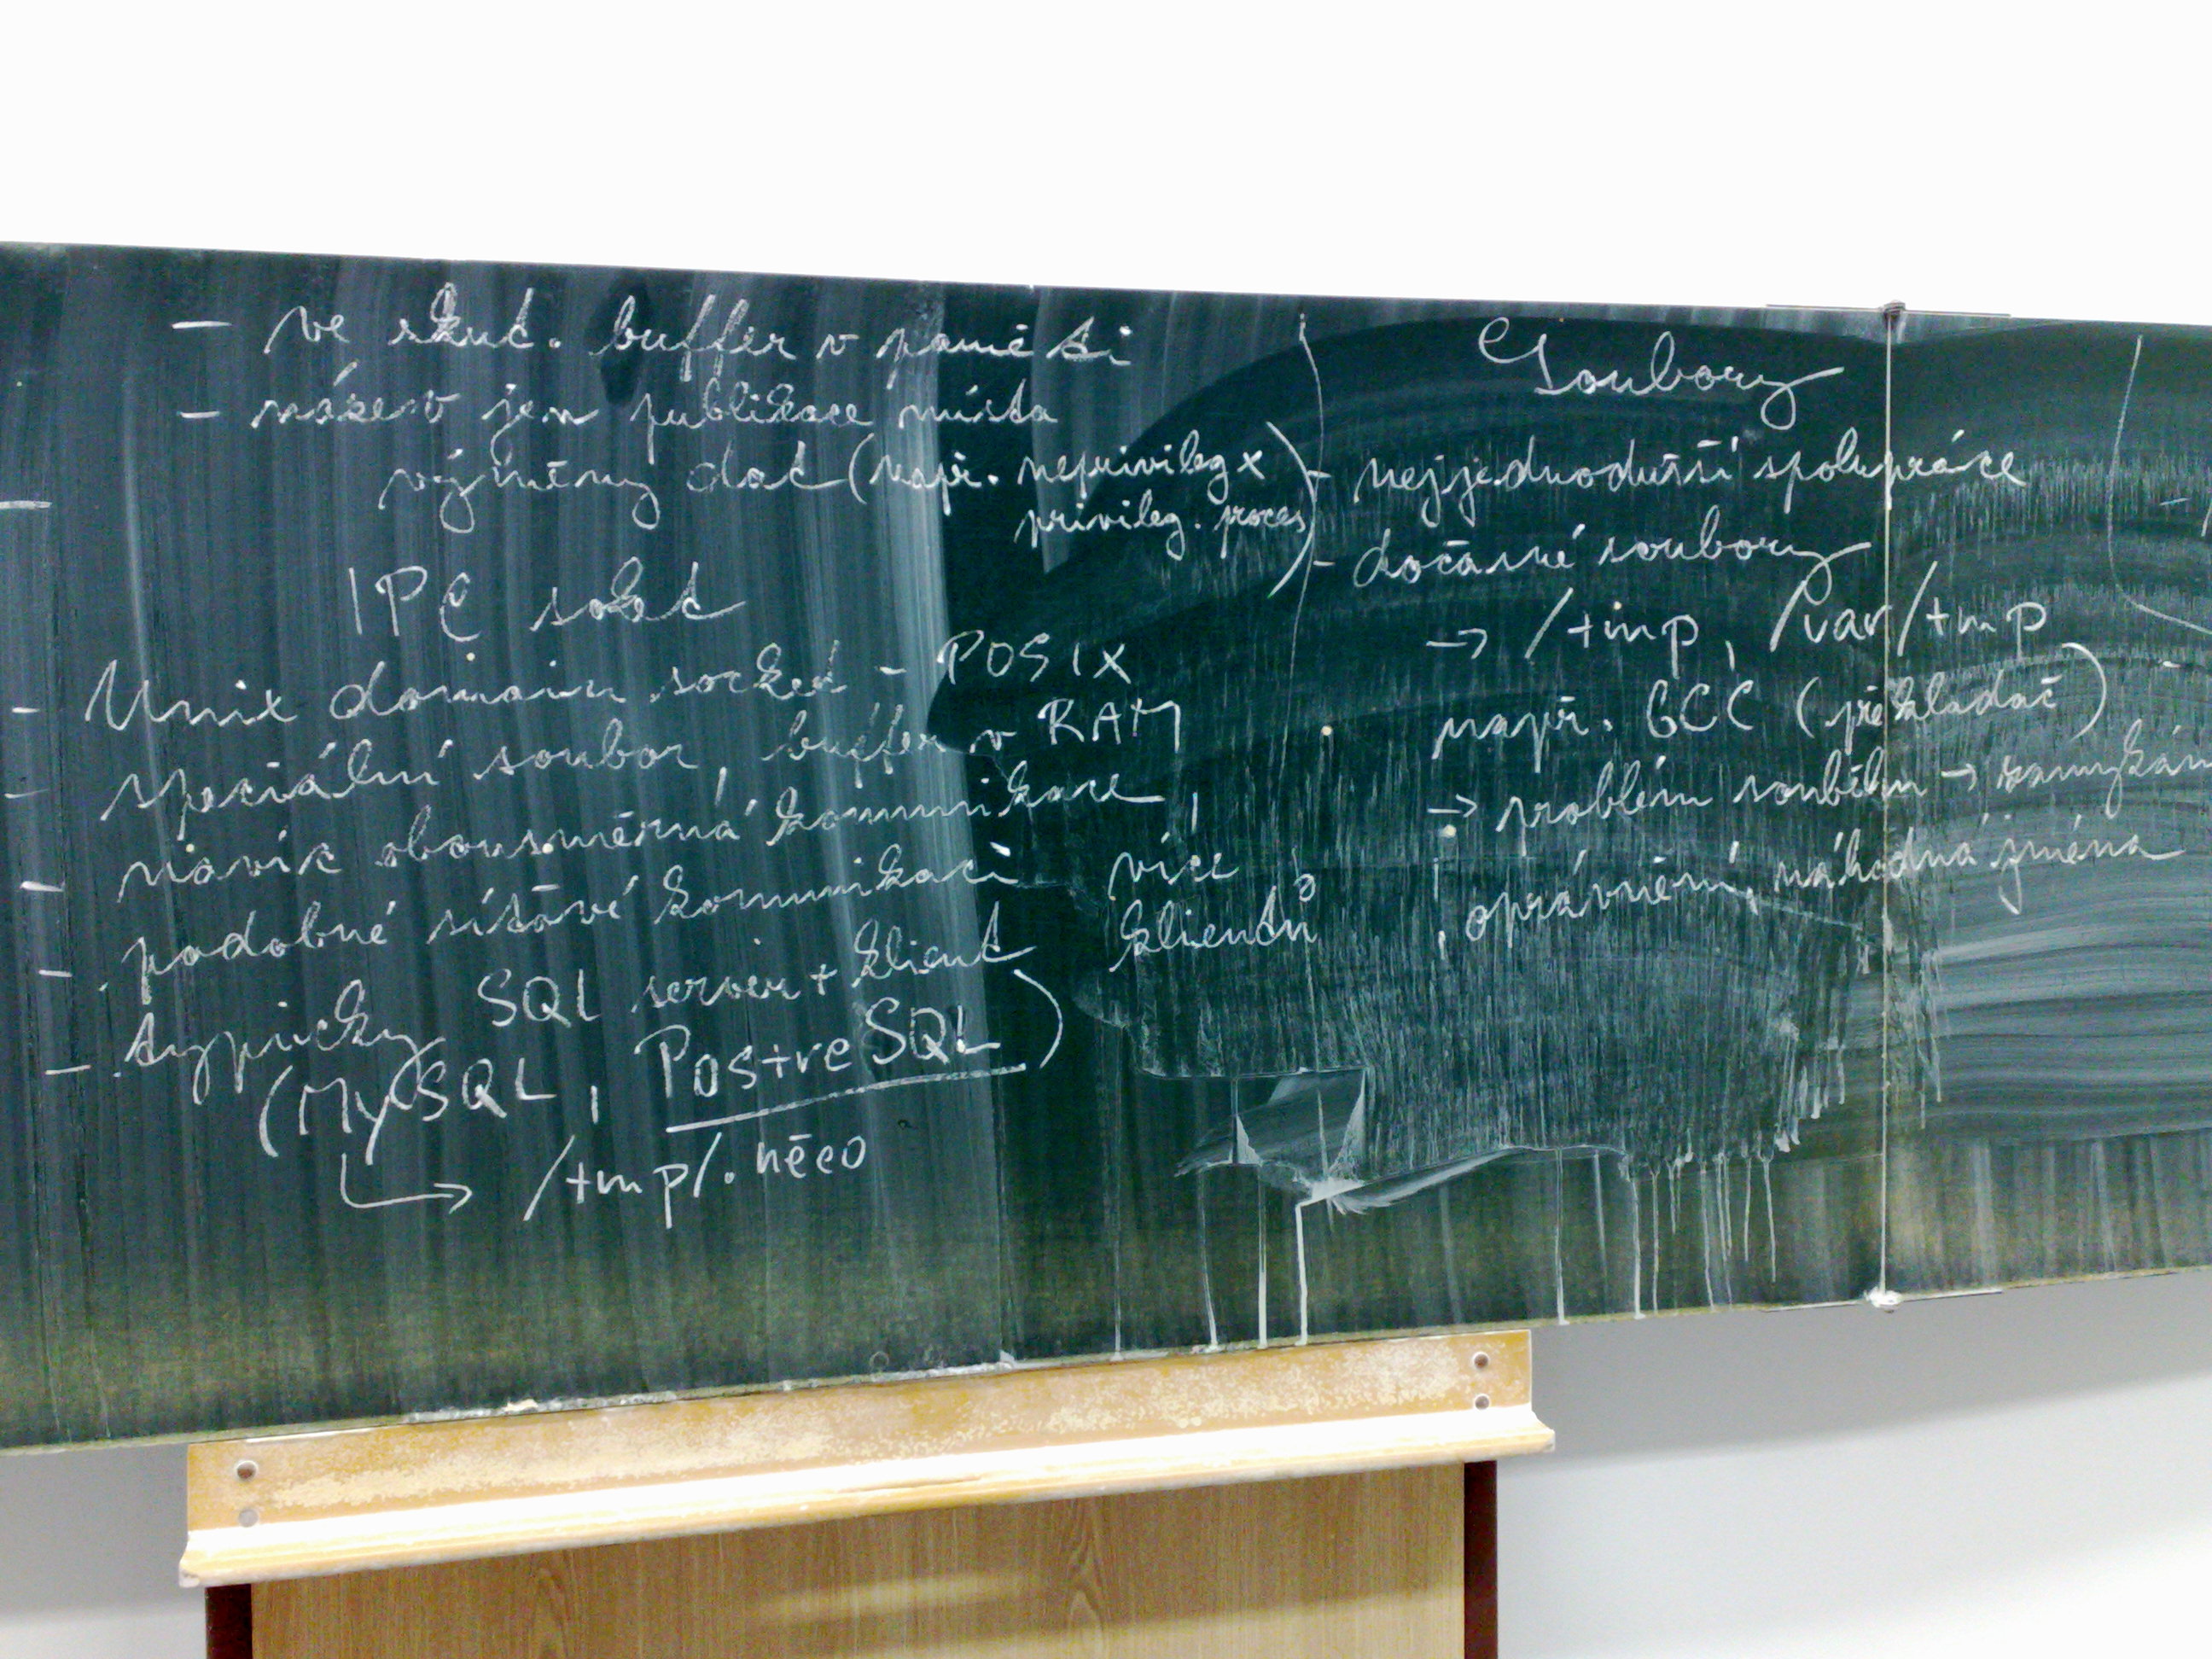 - ve skuč. buffer v paměti
- název jen publikace místa
výměny dat (např. neprivileg x
privileg. proces)
IPC soket
- Unix domain socket - POSIX
- speciální soubor, buffer v RAM
- navíc obousměrná komunikace,
- podobné síťové komunikaci více
klientů
- typicky SQL server + klient
(MySQL, PostreSQL)
/tmp/.něco
Soubory
- nejjednodušší spolupráce
- dočasné soubory
→ /tmp, /var/tmp
např. GCC (překladač)
→ problém souběhu → zamykán
, oprávnění, náhodná jména